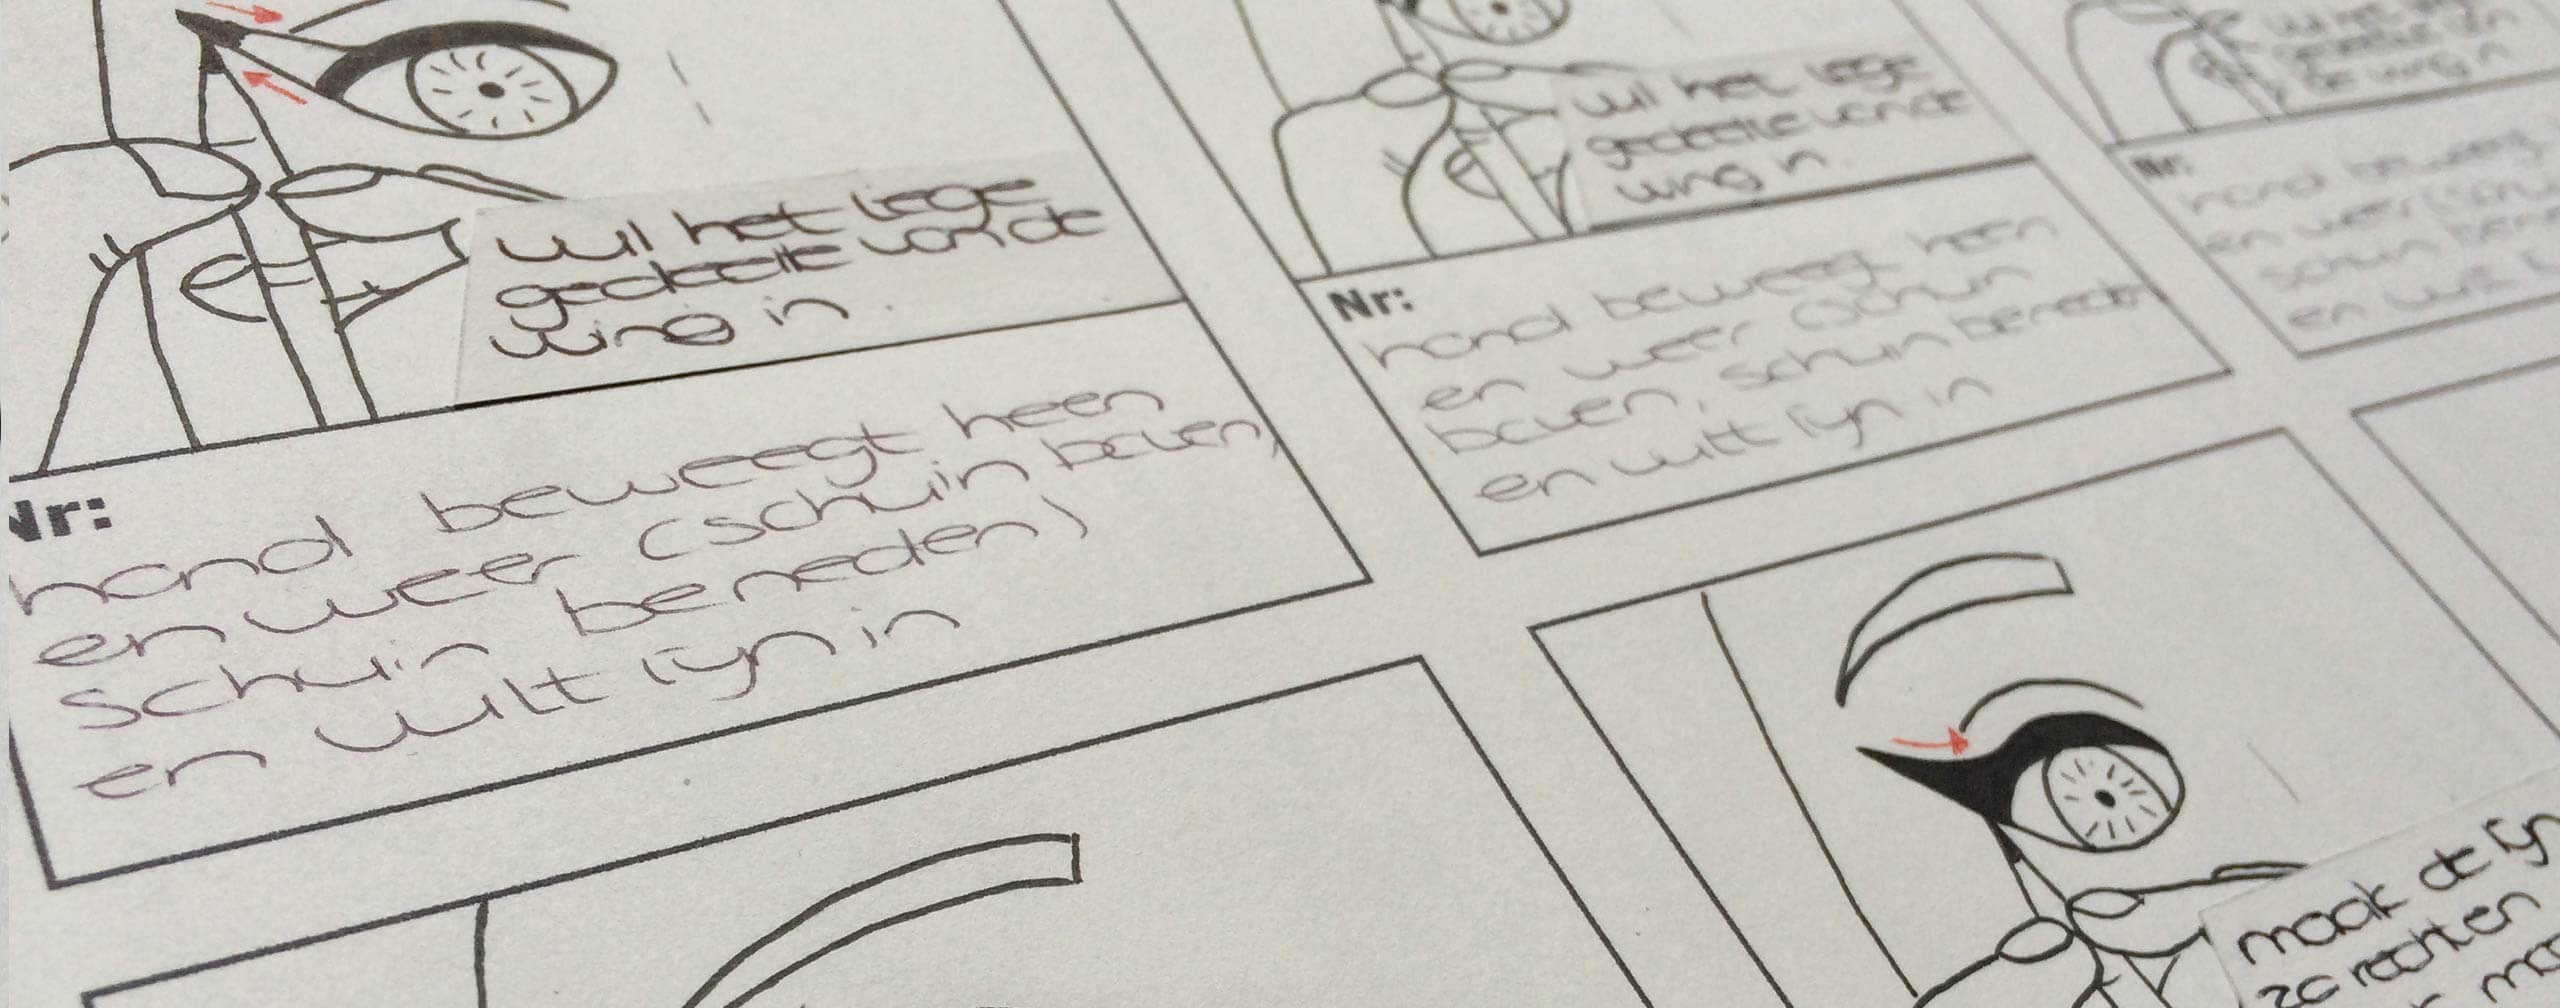 vul het lege
gedeelte van de
wing in.
Nr:
hand beweegt heen
en weer (schuin boven,
schuin beneden)
en vult lijn in
vul het lege
gedeelte van de
wing in.
Nr:
hand beweegt heen
en weer (schuin
boven, schuin beneden
en vult lijn in
Nr:
hand beweegt
en weer (schui
schuin bene
en vult
maak de lijn
zo rechten